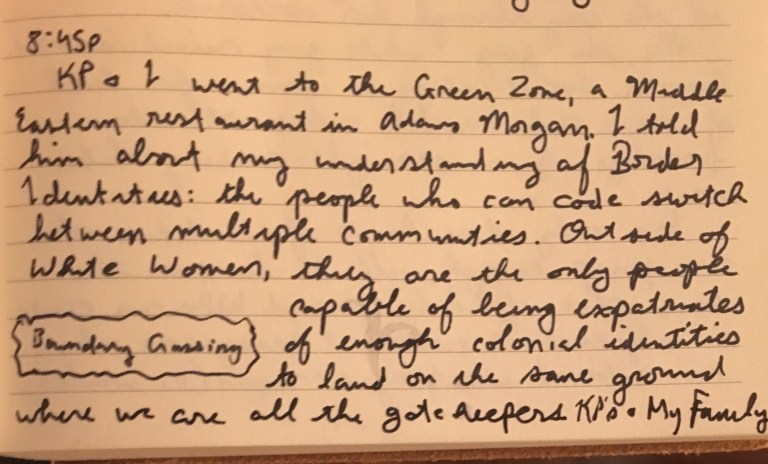 8:45p
KP & I went to the Green Zone, a Middle
Eastern restaurant in Adams Morgan. I told
him about my understanding of Border
Identities: the people who can code switch
between multiple communities. Outside of
White Women, they are the only people
capable of being expatriates
Boundary Crossing
of enough colonial identities
to land on the same ground
where we are all the gatekeepers KP's & My Family